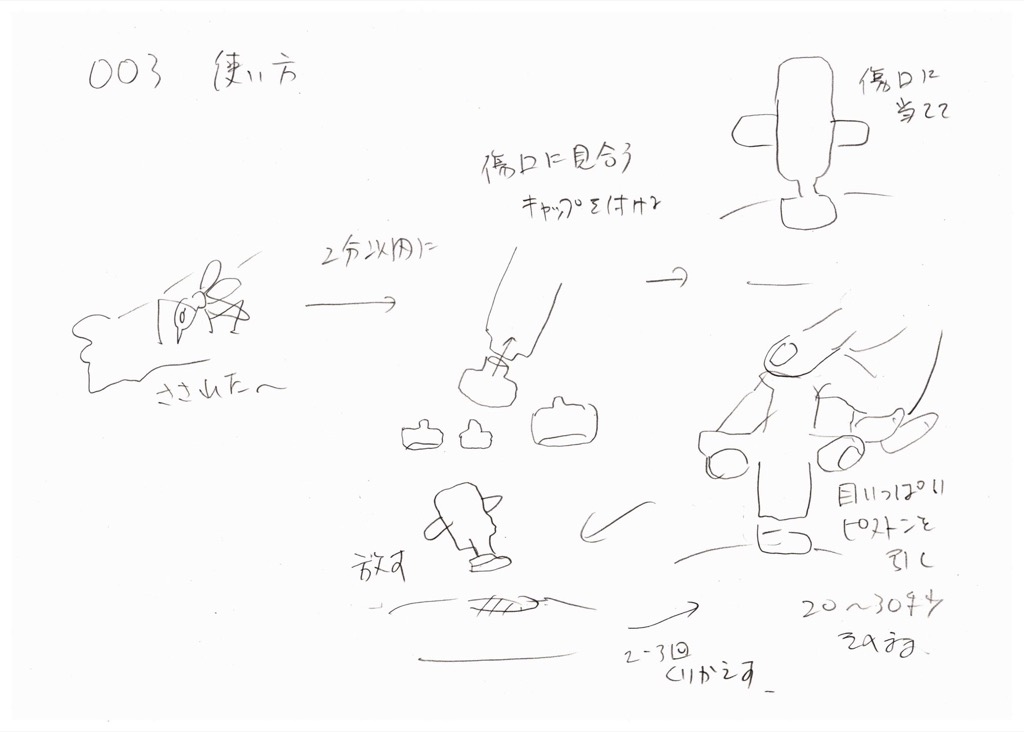 003 使い方
さされた〜
2分以内に
傷口に見合う
キャップを付ける
傷口に
当てて
目いっぱい
ピストンを
引く
20〜30秒
そのまま
放す
2-3回
くりかえす